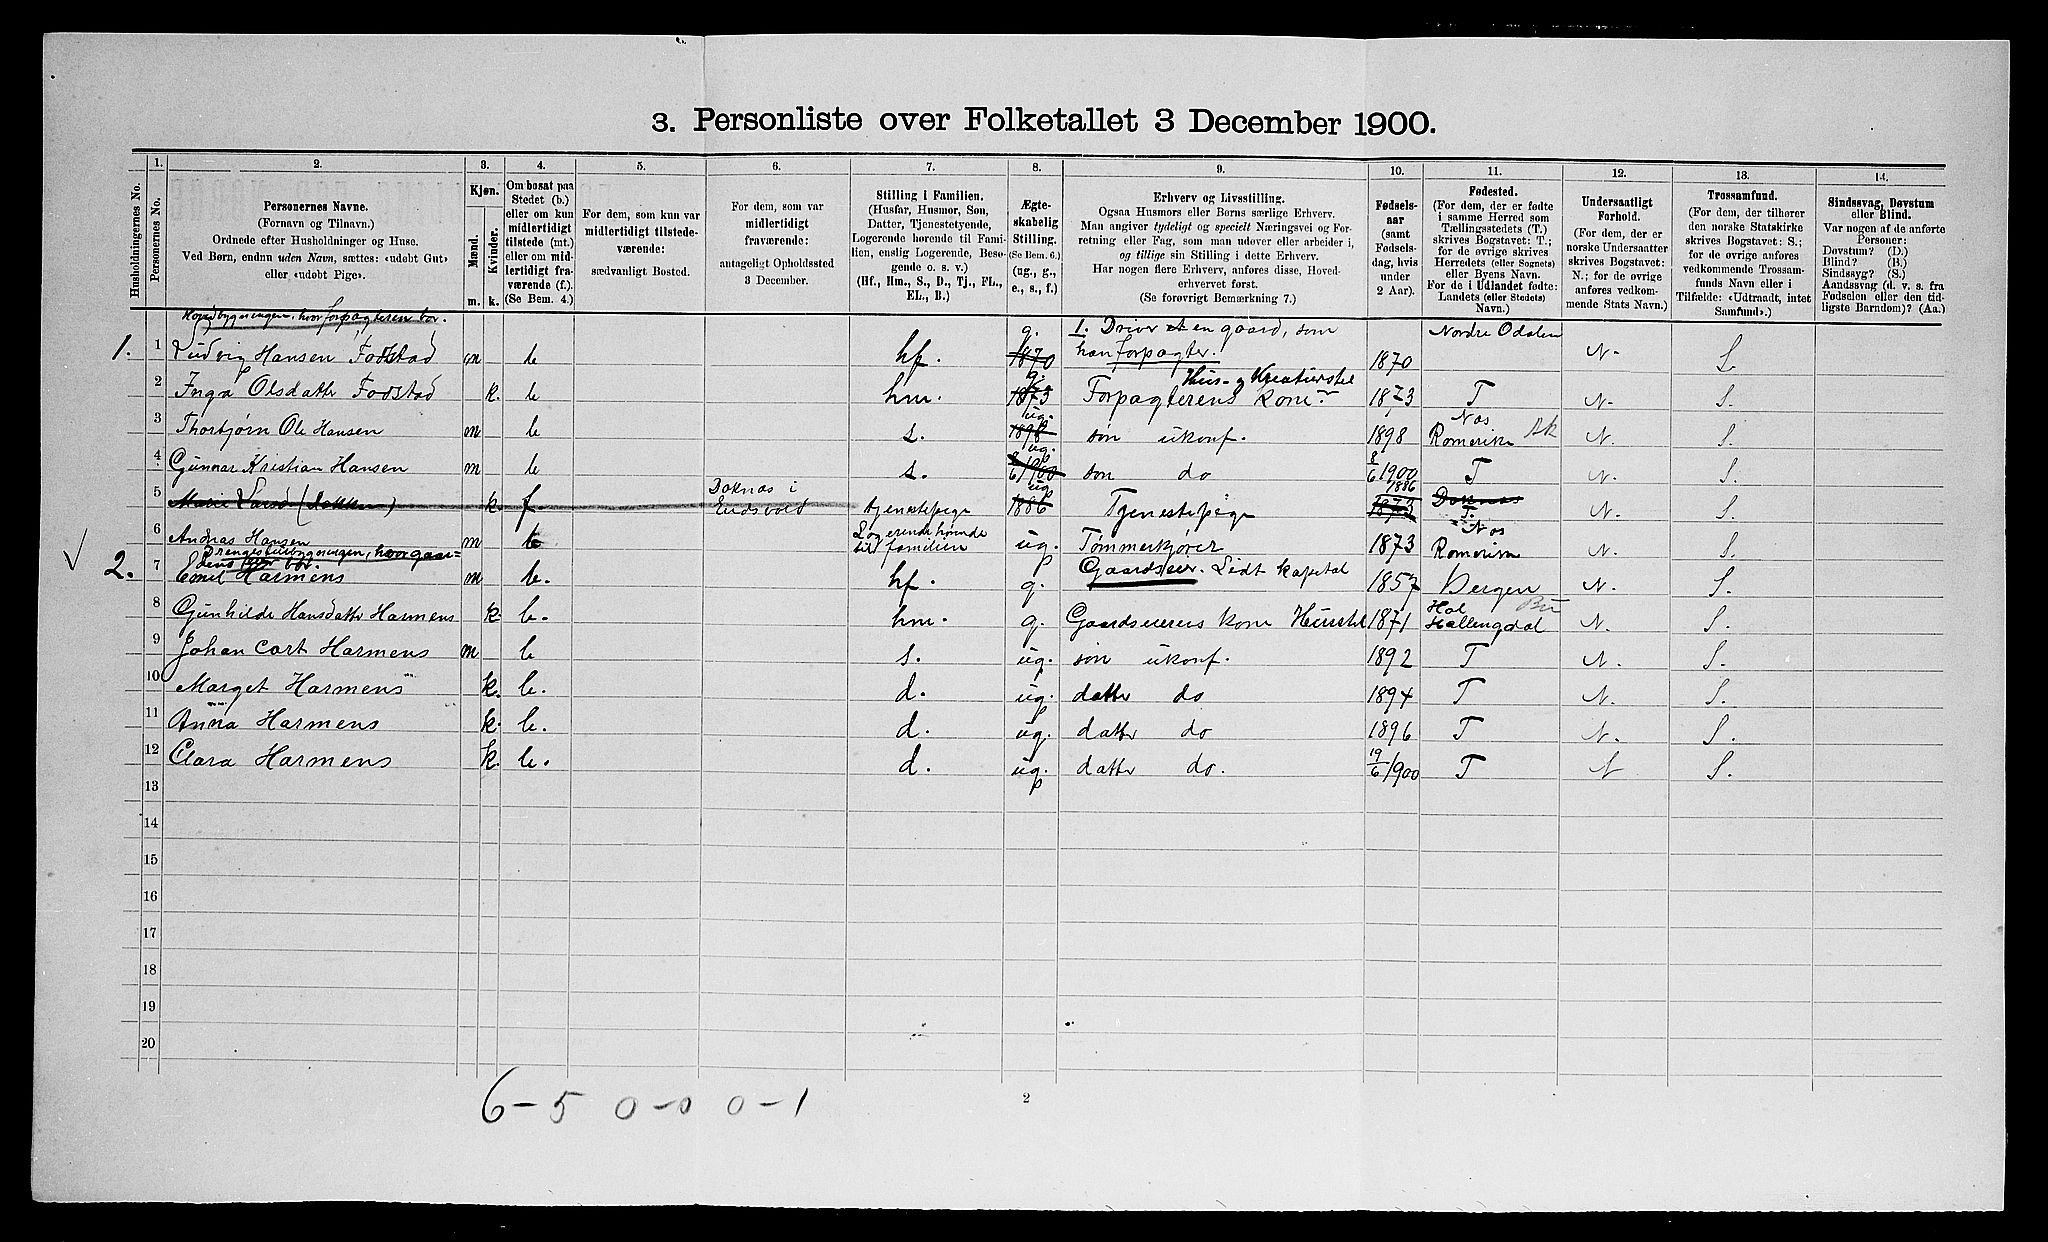 3. Personliste over Folketallet 3 December 1900.
1. 2. 3. 4. 5. 6. 7. 8. 9. 10. 11. 12. 13. 14.
Husholdningernes No.
Personernes No.
Personernes Navne.
(Fornavn og Tilnavn.)
Ordnede efter Husholdninger og Huse.
Ved Børn, endnu uden Navn, sættes: «udøbt Gut»
eller «udøbt Pige».
Kjøn.
Mænd.
Kvinder.
m. k.
Om bosat paa
Stedet (b.)
eller om kun
midlertidigt
tilstede (mt.)
eller om mid-
lertidigt fra-
værende (f.).
(Se Bem. 4.)
For dem, som kun var
midlertidigt tilstede-
værende:
sædvanligt Bosted.
For dem, som var
midlertidigt
fraværende:
antageligt Opholdssted
3 December.
Stilling i Familien.
(Husfar, Husmor, Søn,
Datter, Tjenestetyende,
Logerende hørende til Fami-
lien, enslig Logerende, Besø-
gende o. s. v.)
(Hf., Hm., S., D., Tj., FL.,
EL., B.)
Ægte-
skabelig
Stilling.
(Se Bem. 6.)
(ug., g.,
e., s., f.)
Erhverv og Livsstilling.
Ogsaa Husmors eller Børns særlige Erhverv.
Man angiver tydeligt og specielt Næringsvei og For-
retning eller Fag, som man udøver eller arbeider i,
og tillige sin Stilling i dette Erhverv.
Har nogen flere Erhverv, anføres disse, Hoved-
erhvervet først.
(Se forøvrigt Bemærkning 7.)
Fødsels-
aar
(samt
Fødsels-
dag, hvis
under
2 Aar).
Fødested.
(For dem, der er fødte
i samme Herred som
Tællingsstedets (T.)
skrives Bogstavet: T.;
for de øvrige skrives
Herredets (eller Sognets)
eller Byens Navn.
For de i Udlandet fødte:
Landets (eller Stedets)
Navn.)
Undersaatligt
Forhold.
(For dem, der er
norske Undersaatter
skrives Bogstavet:
N.; for de øvrige
anføres vedkom-
mende Stats Navn.)
Trossamfund.
(For dem, der tilhører
den norske Statskirke
skrives Bogstavet: S.;
for de øvrige anføres
vedkommende Trossam-
funds Navn eller i
Tilfælde: «Udtraadt, intet
Samfund».)
Sindssvag, Døvstum
eller Blind.
Var nogen af de anførte
Personer:
Døvstum? (D.)
Blind? (B.)
Sindssyg? (S.)
Aandssvag (d. v. s. fra
Fødselen eller den tid-
ligste Barndom)? (Aa.)
Hovedbygningen, hvor forpagteren bor.
1. 1 Ludvig Hansen Fodstad m b hf. 1870 g. 1. Driver en gaard, som han forpagter. 1870 Nordre Odalen N. S.
2 Inga Olsdatter Fodstad k. b hm. 1873 g. Forpagterens kone Hus- og Kreaturstel 1873 T N. S.
3 Thorbjørn Ole Hansen m b s. 1898 ug. søn ukonf. 1898 Nes Romerike Ak N. S.
4 Gunnar Kristian Hansen m b s. 8/6 1900 ug. søn do 8/6 1900 T N. S.
5 Marie k. f. i Eidsvold tjenestepige 1886 ug Tjenestepige 1873 1886 T. N. S.
6 Andreas Hansen m b Logerende hørende til familien ug. Tømmerkjører 1873 Nes Romerike N. S.
Drengestubygningen, hvor gaardens eier bor.
2. 7 Emil Harmens m b. hf. g. Gaardseier. Lidt kapital 1857 Bergen N. S.
8 Gunhilde Hansdatter Harmens k. b. hm. g. Gaardseierens kone Husstel 1871 Hol Hallingdal Bu N. S.
9 Johan Cart Harmens m b s. ug. søn ukonf. 1892 T N. S.
10 Marget Harmens k. b. d. ug. datter do 1894 T N S.
11 Anna Harmens k. b. d. ug. datter do 1896 T N. S.
12 Clara Harmens k. b. d. ug. datter do. 19/6 1900 T N S.
13
14
15
16
17
18
19
20
6-5 0-0 0-1
2